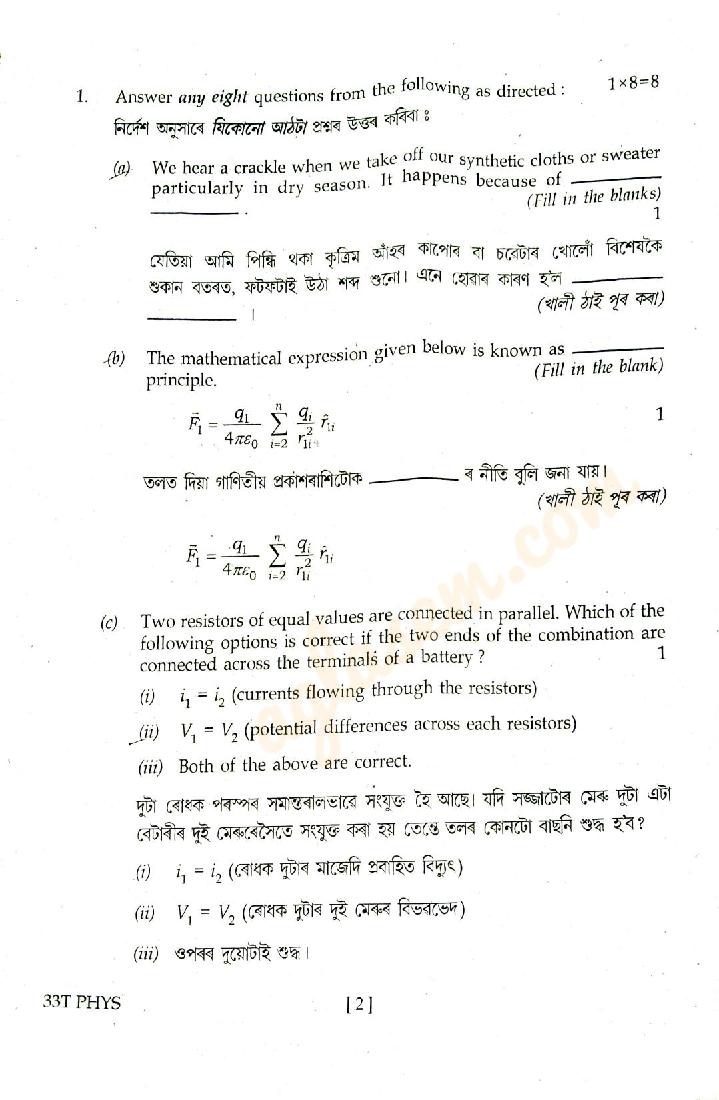 1. Answer any eight questions from the following as directed : 1×8=8
নিৰ্দেশ অনুসাৰে যিকোনো আঠটা প্ৰশ্নৰ উত্তৰ কৰিবা ঃ
(a) We hear a crackle when we take off our synthetic cloths or sweater
particularly in dry season. It happens because of __________
__________ . (Fill in the blanks)
1
যেতিয়া আমি পিন্ধি থকা কৃত্ৰিম আঁহৰ কাপোৰ বা চুৱেটাৰ খোলোঁ বিশেষকৈ
শুকান বতৰত, ফটফটাই উঠা শব্দ শুনো। এনে হোৱাৰ কাৰণ হ'ল __________
__________ । (খালী ঠাই পূৰ কৰা)
(b) The mathematical expression given below is known as __________
principle. (Fill in the blank)
F⃗₁ = q₁/4πε₀ Σᵢ₌₂ⁿ qᵢ/r₁ᵢ² r̂₁ᵢ 1
তলত দিয়া গাণিতীয় প্ৰকাশৰাশিটোক __________ ৰ নীতি বুলি জনা যায়।
(খালী ঠাই পূৰ কৰা)
F⃗₁ = q₁/4πε₀ Σᵢ₌₂ⁿ qᵢ/r₁ᵢ² r̂₁ᵢ
(c) Two resistors of equal values are connected in parallel. Which of the
following options is correct if the two ends of the combination are
connected across the terminals of a battery ? 1
(i) i₁ = i₂ (currents flowing through the resistors)
(ii) V₁ = V₂ (potential differences across each resistors)
(iii) Both of the above are correct.
দুটা ৰোধক পৰস্পৰ সমান্তৰালভাৱে সংযুক্ত হৈ আছে। যদি সজ্জাটোৰ মেৰু দুটা এটা
বেটাৰীৰ দুই মেৰুৰেসৈতে সংযুক্ত কৰা হয় তেন্তে তলৰ কোনটো বাছনি শুদ্ধ হ'ব?
(i) i₁ = i₂ (ৰোধক দুটাৰ মাজেদি প্ৰবাহিত বিদ্যুৎ)
(ii) V₁ = V₂ (ৰোধক দুটাৰ দুই মেৰুৰ বিভৱভেদ)
(iii) ওপৰৰ দুয়োটাই শুদ্ধ।
33T PHYS [ 2 ]
aglasem.com